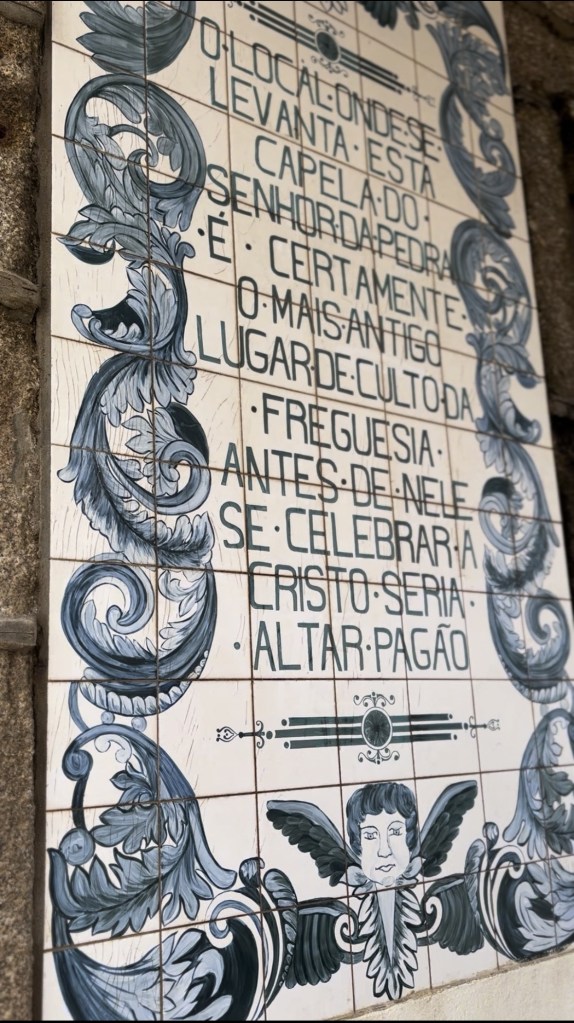 O·LOCAL·ONDE·SE·
LEVANTA·ESTA
CAPELA·DO·
SENHOR·DA·PEDRA
·É·CERTAMENTE·
O·MAIS·ANTIGO
LUGAR·DE·CULTO·DA
·FREGUESIA·
ANTES·DE·NELE
SE·CELEBRAR·A
CRISTO·SERIA·
·ALTAR·PAGÃO